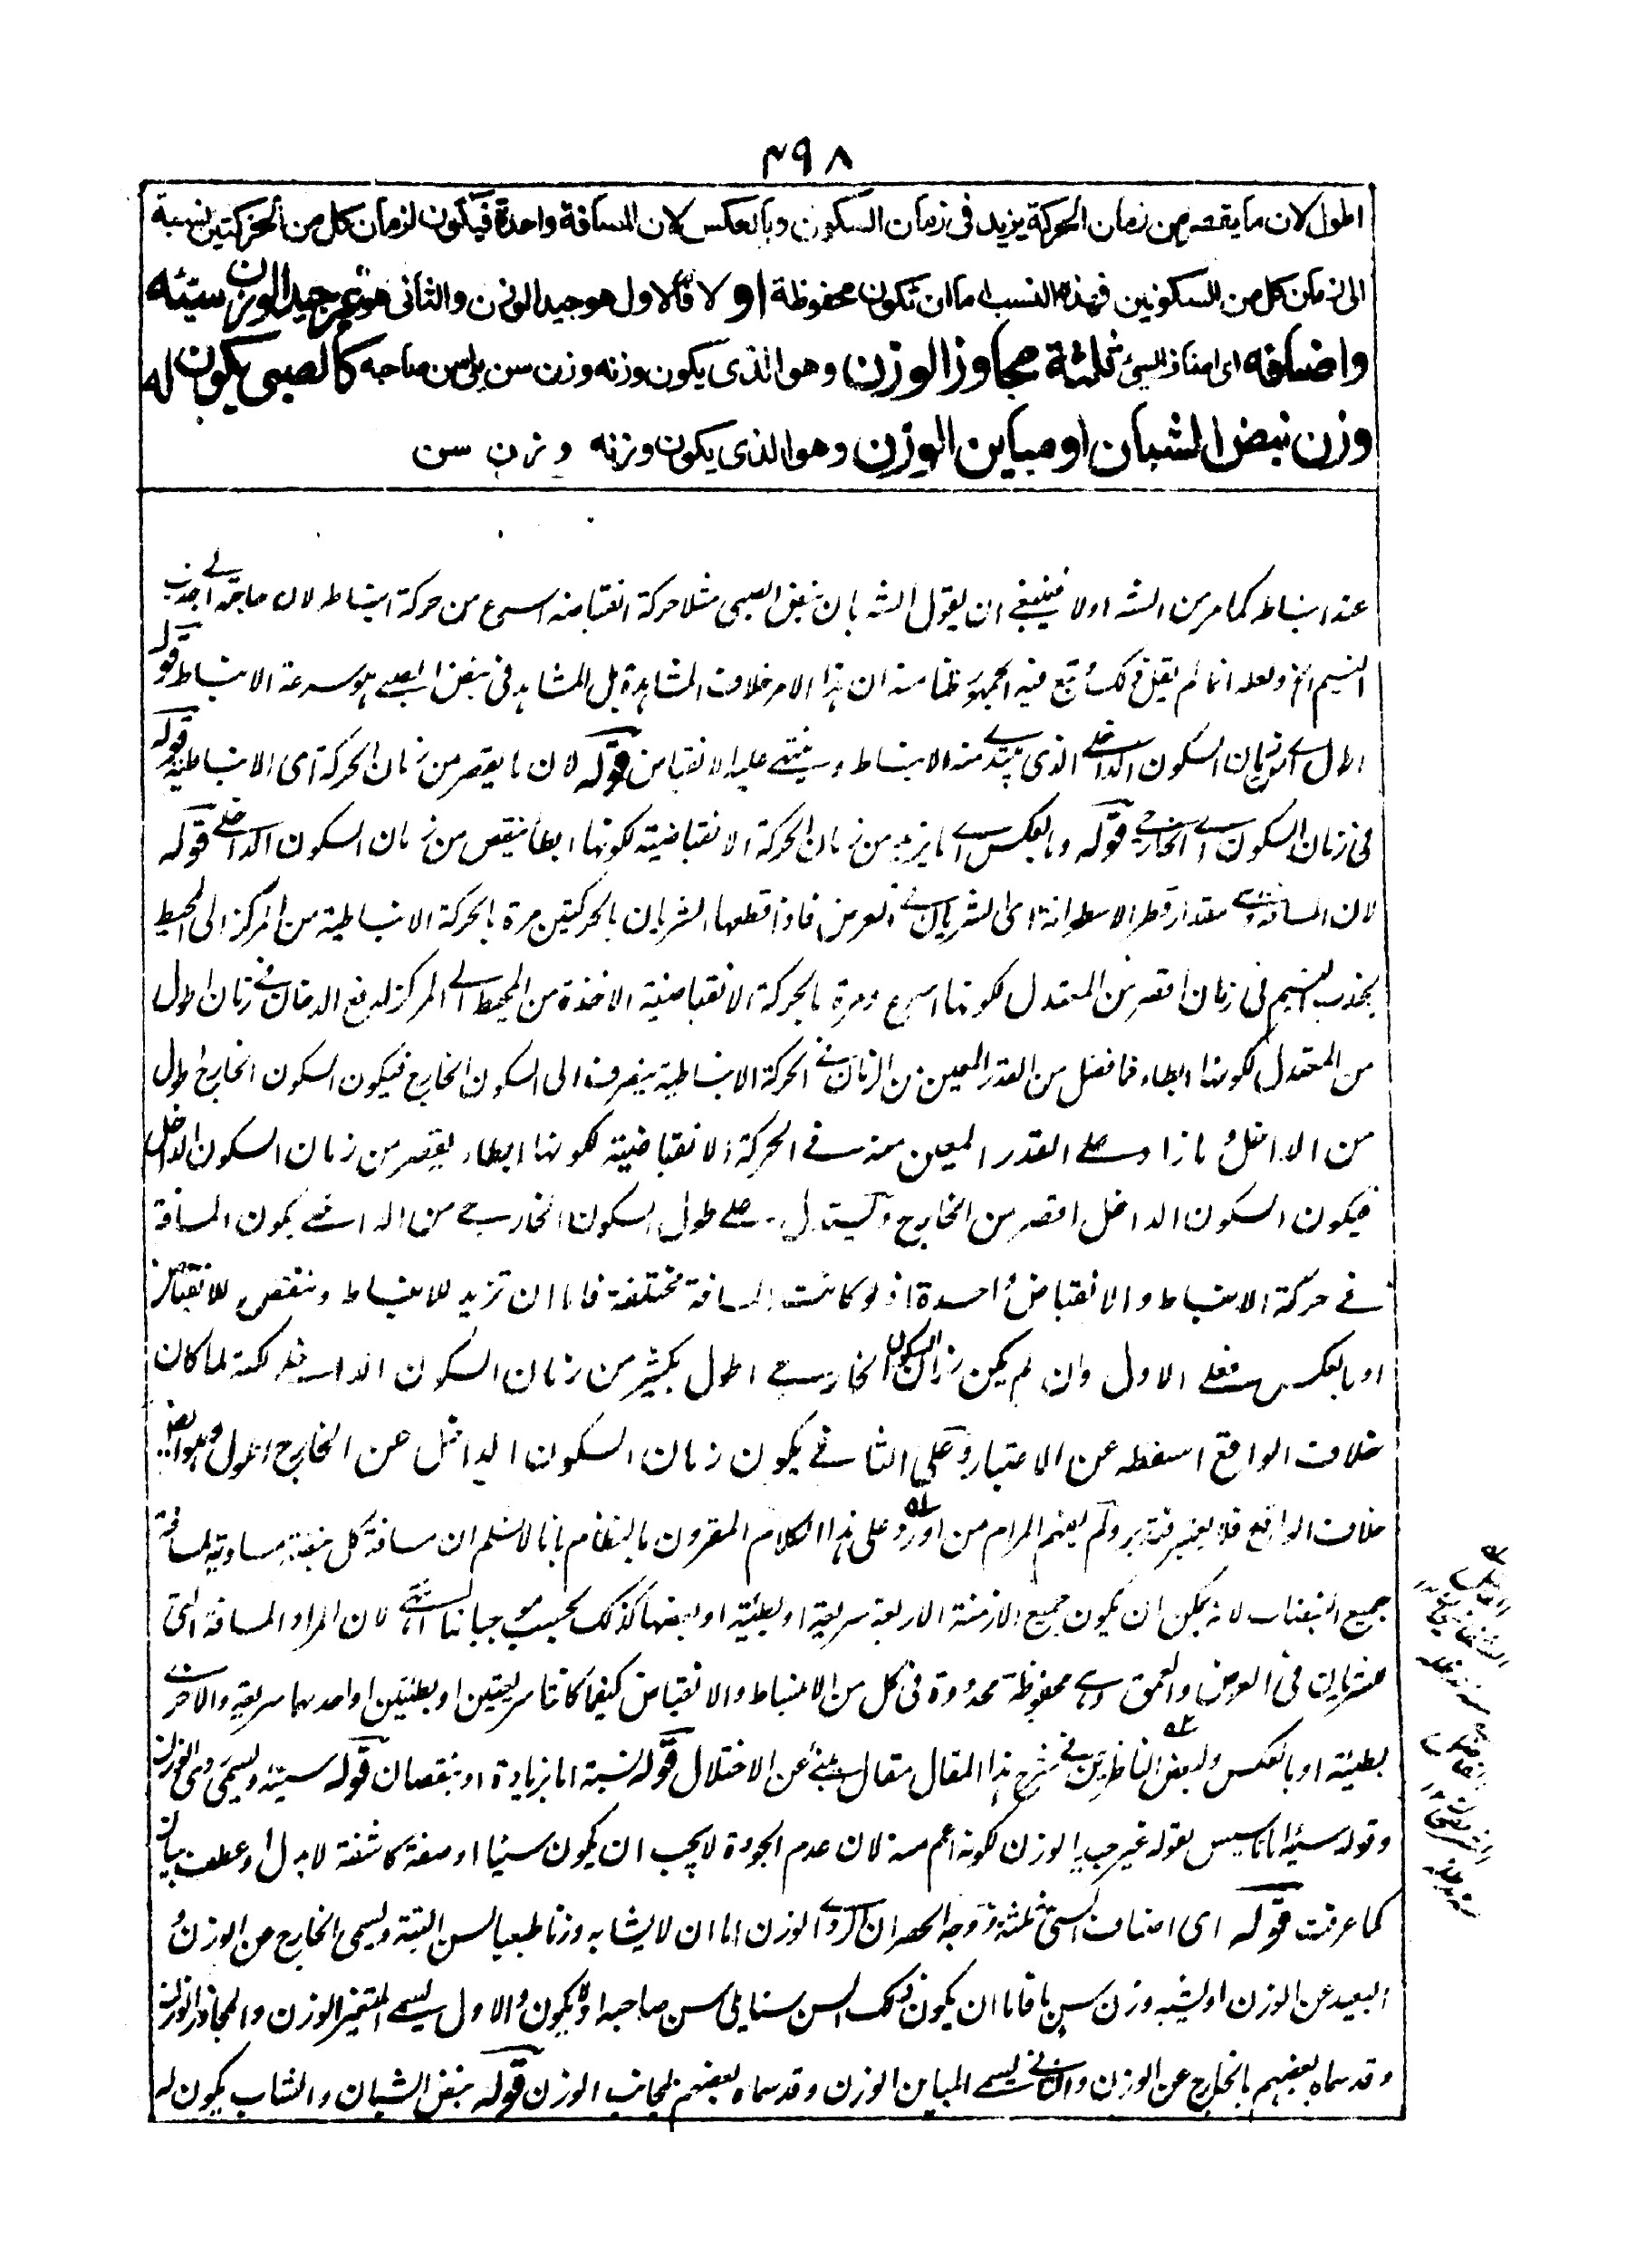 ٤٩٨
اطول لان ما يقصر من زمان الحركة يزيد فى زمان السكون وبالعكس لان المسافة واحدة فيكون لزمان كل من الحركتين نسبة
الى زمان كل من السكونين فهذه النسب اما ان تكون محفوظة او لا فالاول هو جيد الوزن والثانى هو غير جيد الوزن سيئه
واصنافه اى اصناف السيئ ثلثة مجاوز الوزن وهو الذى يكون وزنه وزن سن يلى سن صاحبه كالصبى يكون له
وزن نبض الشبان او مباين الوزن وهو الذى يكون وزنه وزن سن
عند انبساط كما مر من الشه اولا فينبغى ان يقول الشه بان نبض الصبى مثلا حركة انقباضه اسرع من حركة انبساط لان حاجته الى جذب
النسيم الخ ولعله انما لم يقل ذلك تبع فيه الجمهور ظنا منه ان هذا الامر خلاف المشاهدة بل المشاهد فى نبض الصبى هو سرعة الانبساط قوله
اطول اى من زمان السكون الداخلى الذى يبتدى منه الانبساط وينتهى عليه الانقباض قوله لان ما يقصر من زمان الحركة اى الانبساطية قوله
فى زمان السكون اى الخارجى قوله وبالعكس اى ما يزيد من زمان الحركة الانقباضية لكونها ابطأ ينقص من زمان السكون الداخلى قوله
لان المسافة وهى مقدار قطر الاسطوانة اى الشريان فى العرض فاذا قطعها الشريان بالحركتين مرة بالحركة الانبساطية من المركز الى المحيط
بجذب النسيم فى زمان اقصر من المعتدل لكونها اسرع ومرة بالحركة الانقباضية الاخذة من المحيط الى المركز لدفع الدخان فى زمان اطول
من المعتدل لكونها ابطاء فما فضل من القدر المعين من الزمان فى الحركة الانبساطية ينصرف الى السكون الخارج فيكون السكون الخارج اطول
من الداخل وما زاد على القدر المعين منه فى الحركة الانقباضية لكونها ابطاء يقصر من زمان السكون الداخل
فيكون السكون الداخل اقصر من الخارج ويستدل على طول السكون الخارجى من الداخلى بكون المسافة
فى حركة الانبساط والانقباض واحدة اذ لو كانت المسافة مختلفة فاما ان تزيد للانبساط وتنقص للانقباض
او بالعكس فعلى الاول وان لم يكن زمان السكون الخارجى اطول بكثير من زمان السكون الداخلى لكنه لما كان
خلاف الواقع اسقطه عن الاعتبار وعلى الثانى يكون زمان السكون الداخل عن الخارج اطول وهو ايضا
خلاف الواقع فلا يعتبر فتدبر ولم يفهم المرام من اورد على هذا الكلام المقرون بالنظام بانا لانسلم ان مسافة كل نبضة مساوية لمسافة
جميع النبضات لانه يمكن ان يكون جميع الازمنة الاربعة سريعة او بطيئة او بعضها كذلك بحسب انتهى لان المراد المسافة التى
للشريان فى العرض والعمق وهى محفوظة محدودة فى كل من الانبساط والانقباض كيفما كانتا سريعتين او بطيئتين او احدهما سريعة والاخرى
بطيئة او بالعكس ولبعض الناظرين فى شرح هذا المقال مقال ينبئ عن الاختلال قوله نسبة اما بزيادة او بنقصان قوله سيئه ويسمى ردى الوزن
وقوله سيئه اما تاسيس بقوله غير جيد الوزن لكونه اعم منه لان عدم الجودة لايجب ان يكون سيئا او صفة كاشفة لا بدل او عطف بيان
كما عرفت قوله اى اصناف السيئ ثلثة ووجه الحصر ان الردى الوزن اما ان لايشابه وزنا طبعيا لسن البتة ويسمى الخارج عن الوزن و
البعيد عن الوزن او يشبه وزن سن ما فاما ان يكون ذلك السن سنا يلى سن صاحبه او لا يكون والاول يسمى المتغير الوزن والمجاوز الوزن
وقد سماه بعضهم بالخارج عن الوزن والثانى يسمى المباين الوزن وقد سماه بعضهم بمجانب الوزن قوله نبض الشبان والشاب يكون له